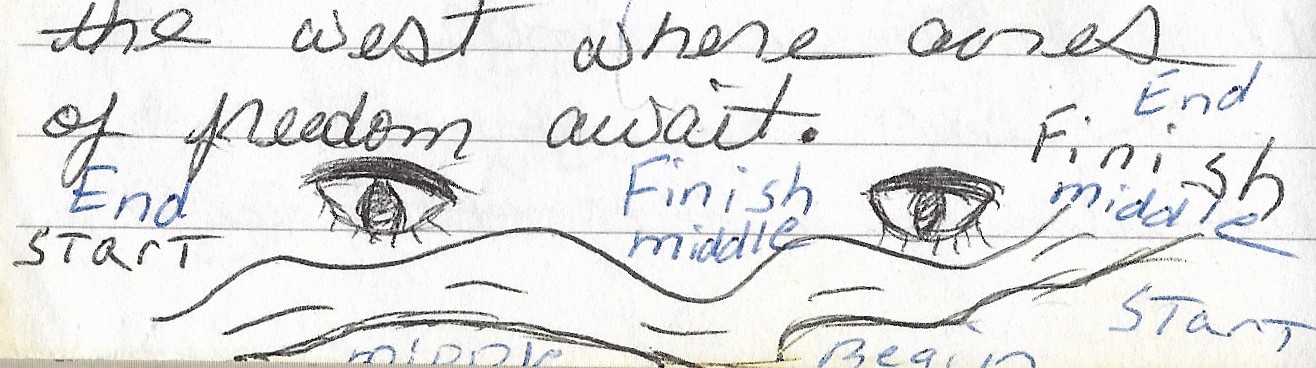 the west where acres
of freedom await.
End
Finish
middle
End
START
Finish
middle
START
middle
Begin